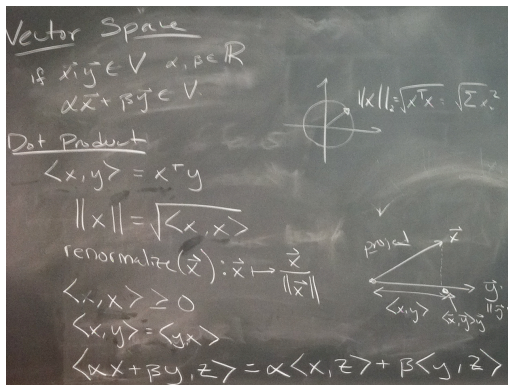 Vector Space
if x⃗, y⃗ ∈ V α, β ∈ ℝ
αx⃗ + βy⃗ ∈ V.
Dot Product
<x, y> = xᵀy
||x|| = √<x, x>
renormalize(x⃗): x⃗ ↦ x⃗/||x⃗||
<x, x> ≥ 0
<x, y> = <yx>
<αx + βy, z> = α<x, z> + β<y, z>
||x||₂ = √xᵀx = √Σxᵢ²
project
x⃗
y⃗
<x, y>
<x, y>y⃗